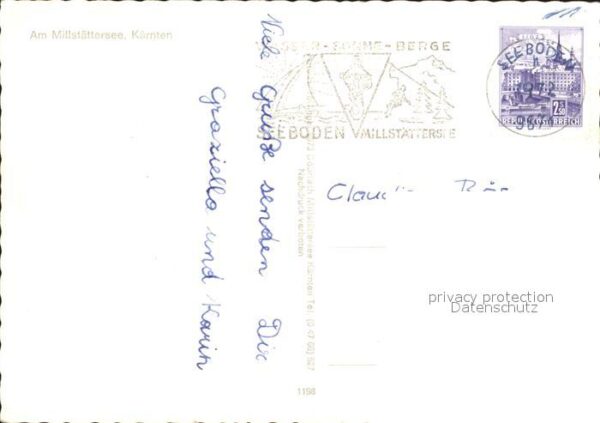 Am Millstättersee, Kärnten
Viele Grüße senden Dir
Graziella und Karin
SONNE - BERGE
SEEBODEN MILLSTÄTTERSEE
SEEBODEN
1972
2.50
REPUBLIK ÖSTERREICH
Claudia
Millstättersee Kärnten Tel.
Nachdruck verboten
privacy protection
Datenschutz
1198